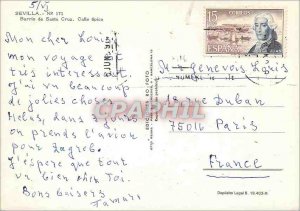 5/VI
SEVILLA. - Nº 173
Barrio de Santa Cruz. Calle típica
Mon cher Louis,
mon voyage est
très interessant.
J'ai vu beaucoup
de jolies choses.
Helas, dans 2 jours
on prends l'avion
pour Zagreb.
J'espère que tout
va bien chez toi.
Bons baisers
Tamara
JUN.
15
CORREOS
ESPAÑA
Mr Genevois Louis
rue Duban
75016 Paris
France
Depósito Legal B.
CARTE-PRECIEUSE.COM